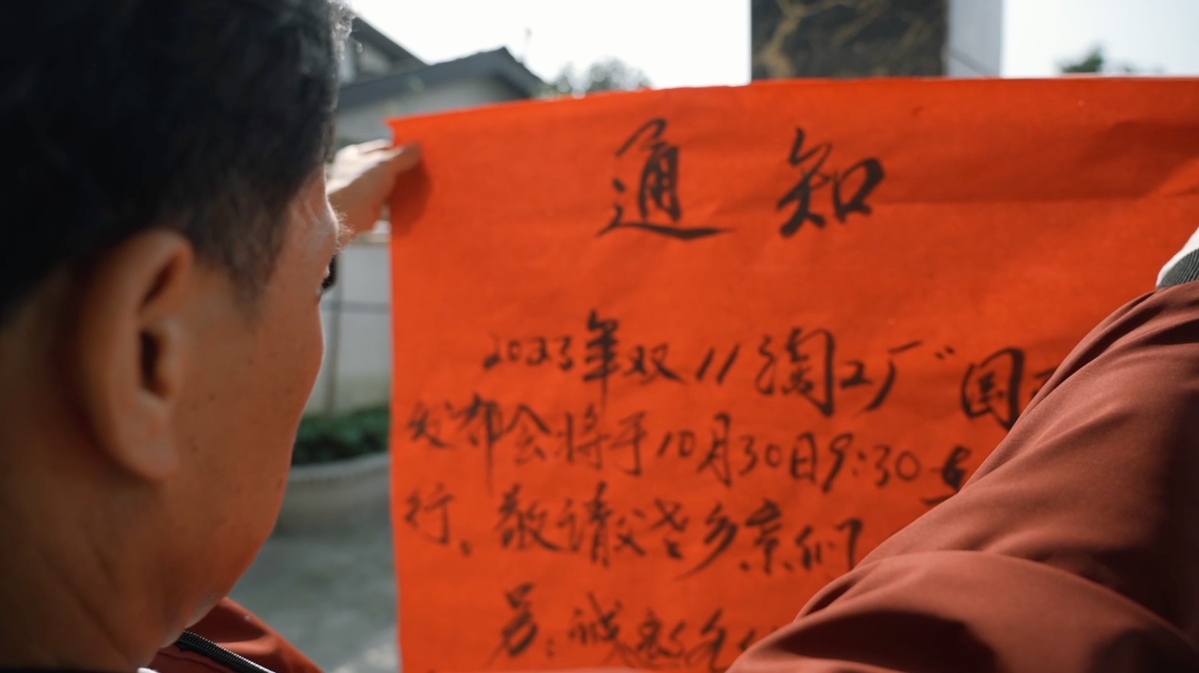 通知
2023年双11淘工厂"国
发布会将于10月30日9:30
行。敬请父老乡亲们
另:诚邀各